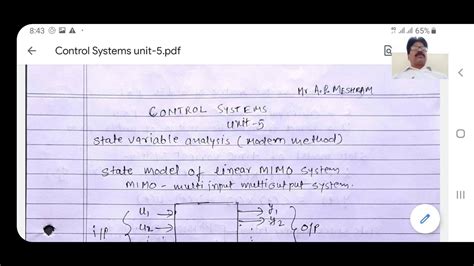 8:43
4G 65%
Control Systems unit-5.pdf
Mr A.P. MESHRAM
CONTROL SYSTEMS
Unit-5
State variable analysis (Modern method)
State model of linear MIMO system.
MIMO - multi input multi output system.
u1
y1
u2
y2
i/P
O/P